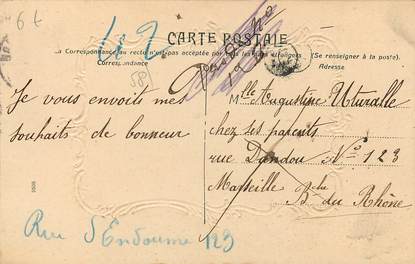 42
CARTE POSTALE
La Correspondance au recto n'est pas acceptée par tous les pays étrangers (Se renseigner à la poste).
Correspondance
Adresse
Je vous envoits mes
souhaits de bonneur
Mlle Augustine Uturalle
chez ses parents
rue Dandou N° 123
Marseille
B. du Rhône
Rue d'Endoume 123